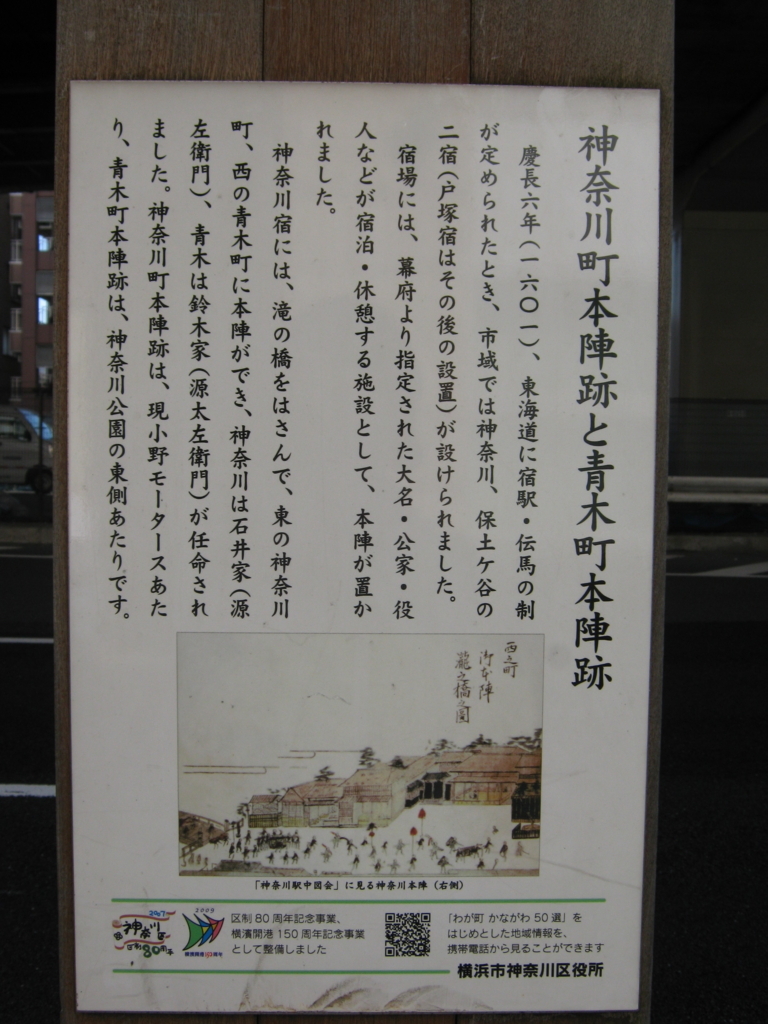 神奈川町本陣跡と青木町本陣跡
慶長六年(一六〇一)、東海道に宿駅・伝馬の制
が定められたとき、市域では神奈川、保土ケ谷の
二宿(戸塚宿はその後の設置)が設けられました。
宿場には、幕府より指定された大名・公家・役
人などが宿泊・休憩する施設として、本陣が置か
れました。
神奈川宿には、滝の橋をはさんで、東の神奈川
町、西の青木町に本陣ができ、神奈川は石井家(源
左衛門)、青木は鈴木家(源太左衛門)が任命され
ました。神奈川町本陣跡は、現小野モータースあた
り、青木町本陣跡は、神奈川公園の東側あたりです。
西之町
御本陣
瀧之橋之圖
「神奈川駅中図会」に見る神奈川本陣(右側)
2007
神奈川区
区制80周年
2009
横浜開港150周年
区制80周年記念事業、
横濱開港150周年記念事業
として整備しました
「わが町 かながわ50選」を
はじめとした地域情報を、
携帯電話から見ることができます
横浜市神奈川区役所